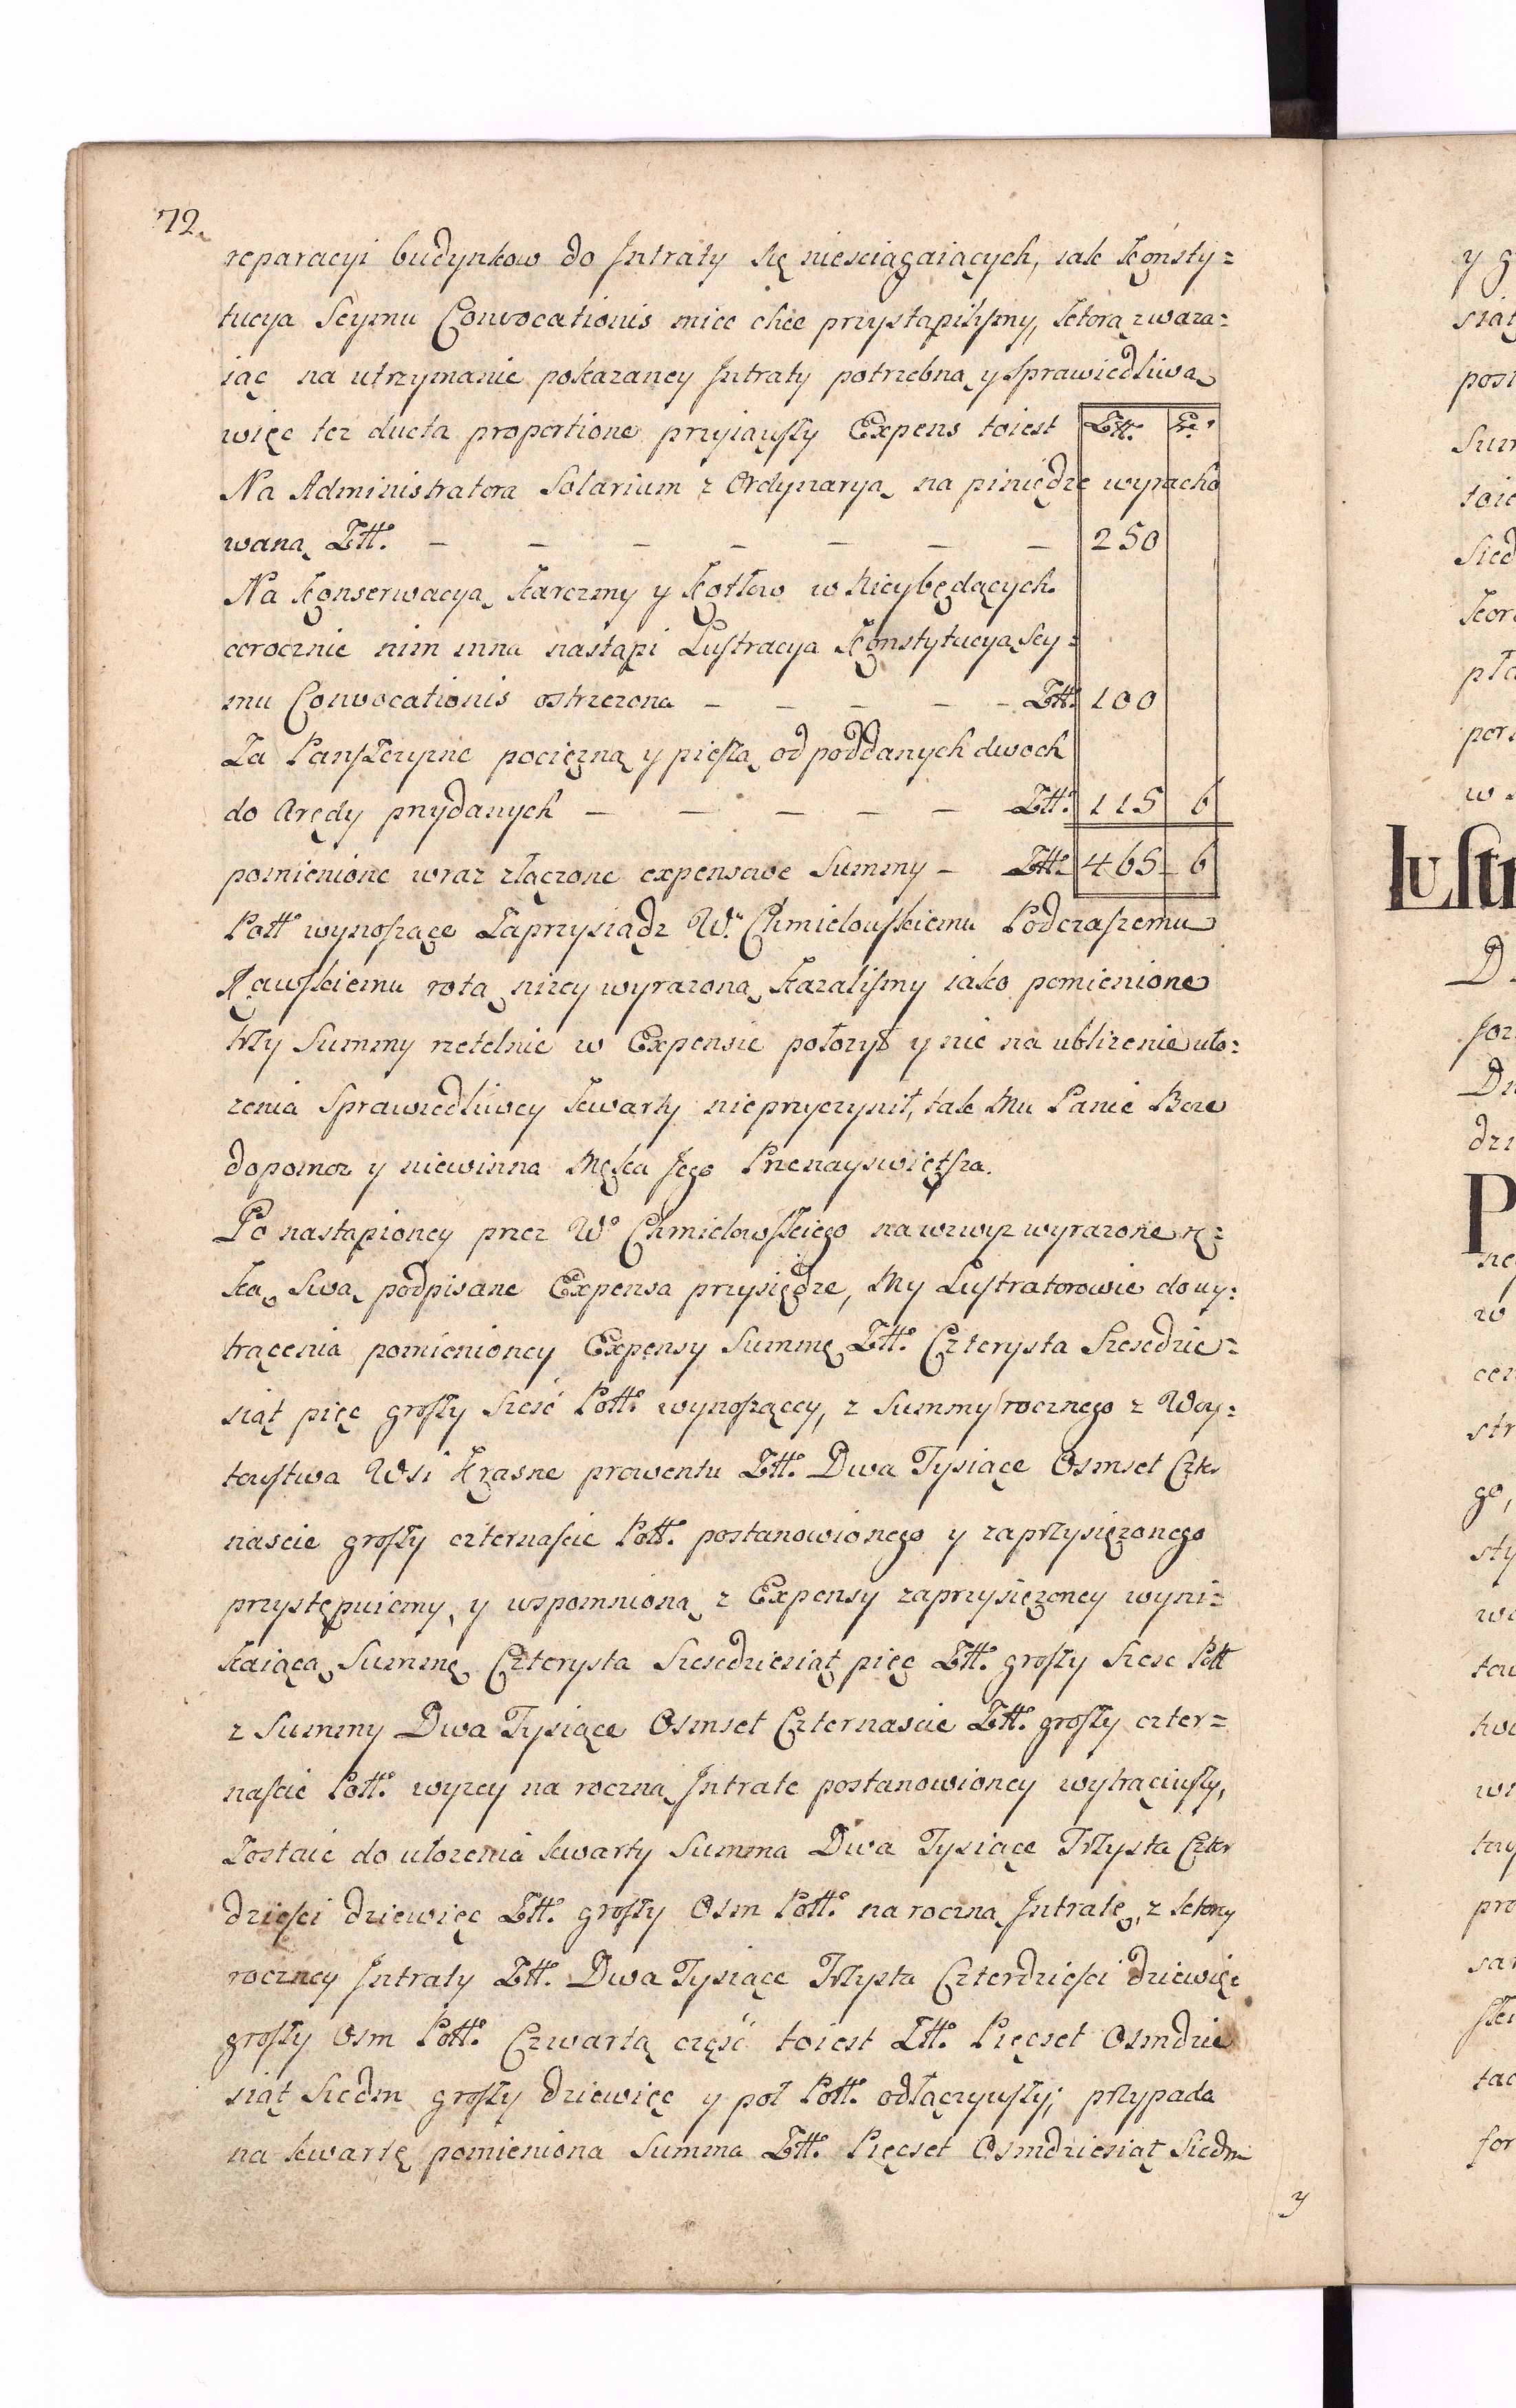 72.
reparacyi budynkow do Jntraty się niesciągaiących, iak Konsty=
tucya Seymu Convocationis miec chce przystąpiliſmy, ktorą zwaza=
iąc na utrzymanie pokazaney Jntraty potrzebną y sprawiedliwą
więc tez ducta proportione przyiąwſzy Expens toiest Złł. Gr.
Na Administratora Solarium z Ordynaryą na piniędze wyracho
waną Złł. – – – – – – – 250
Na Konserwacyą Karczmy y Kotłow w Nieybędących
corocznie nim inna nastąpi Luſtracya Konstytucyą Sey=
mu Convocationis ostrzezona – – – – – Złł. 100
Za Panſzczyznę pociężną y pieſzą od poddanych dwoch
do Arędy przydanych – – – – – Złł. 115 6
pomienione wraz złączone expensowe Summy – Złł. 465 6
Poll wynoſzące Zaprzysiądz W. Chmielowſkiemu Podczaſzemu
Rawſkiemu rotą nizey wyrazoną kazaliſmy iako pomienione
trzy Summy rzetelnie w Expensie położył y nic na ubliżenie uło=
zenia Sprawiedliwey kwarty nieprzyczynił, tak Mu Panie Boze
dopomoz y niewinna Męka Jego Przenayswiętſza.
Po nastąpioney przez Wo Chmielowſkiego na wzwyz wyrazone rę=
ką Swą podpisane Expensa przysiędze, My Luſtratorowie do wy=
trącenia pomienioney Expensy Summę Złł. Czterysta Szescdzie=
siąt pięc groſzy Szesć Poll. wynoſzącey, z Summy rocznego z Woy=
towſtwa Wsi Krasne prowentu Złł. Dwa Tysiące Osmset Czter
nascie groſzy czternaſcie Poll. postanowionego y zaprzysięzonego
przystępuiemy, y wspomnioną z Expensy zaprzysięzoney wyni=
kaiącą Summę Czterysta Szescdziesiąt pięc Złł. groſzy Szesc Poll
z Summy Dwa Tysiące Osmset Czternascie Złł. groſzy czter=
naſcie Poll. wyzey na roczną Jntratę postanowioney wytrąciwſzy,
Zostaie do ułozenia kwarty Summa Dwa Tysiące Trzysta Czter
dzieſci dziewięc Złł. groſzy Osm Poll. na roczną Jntratę, z ktory
roczney Jntraty Złł. Dwa Tysiące Trzysta Czterdzieſci dziewięc
groſzy Osm Poll. Czwartą częsć toiest Złł. Pięcset Osmdzie
siąt Siedm groſzy dziewięc y poł Poll. odłączywſzy; przypada
na kwartę pomieniona Summa Złł. Pięcset Osmdziesiąt Siedm
y